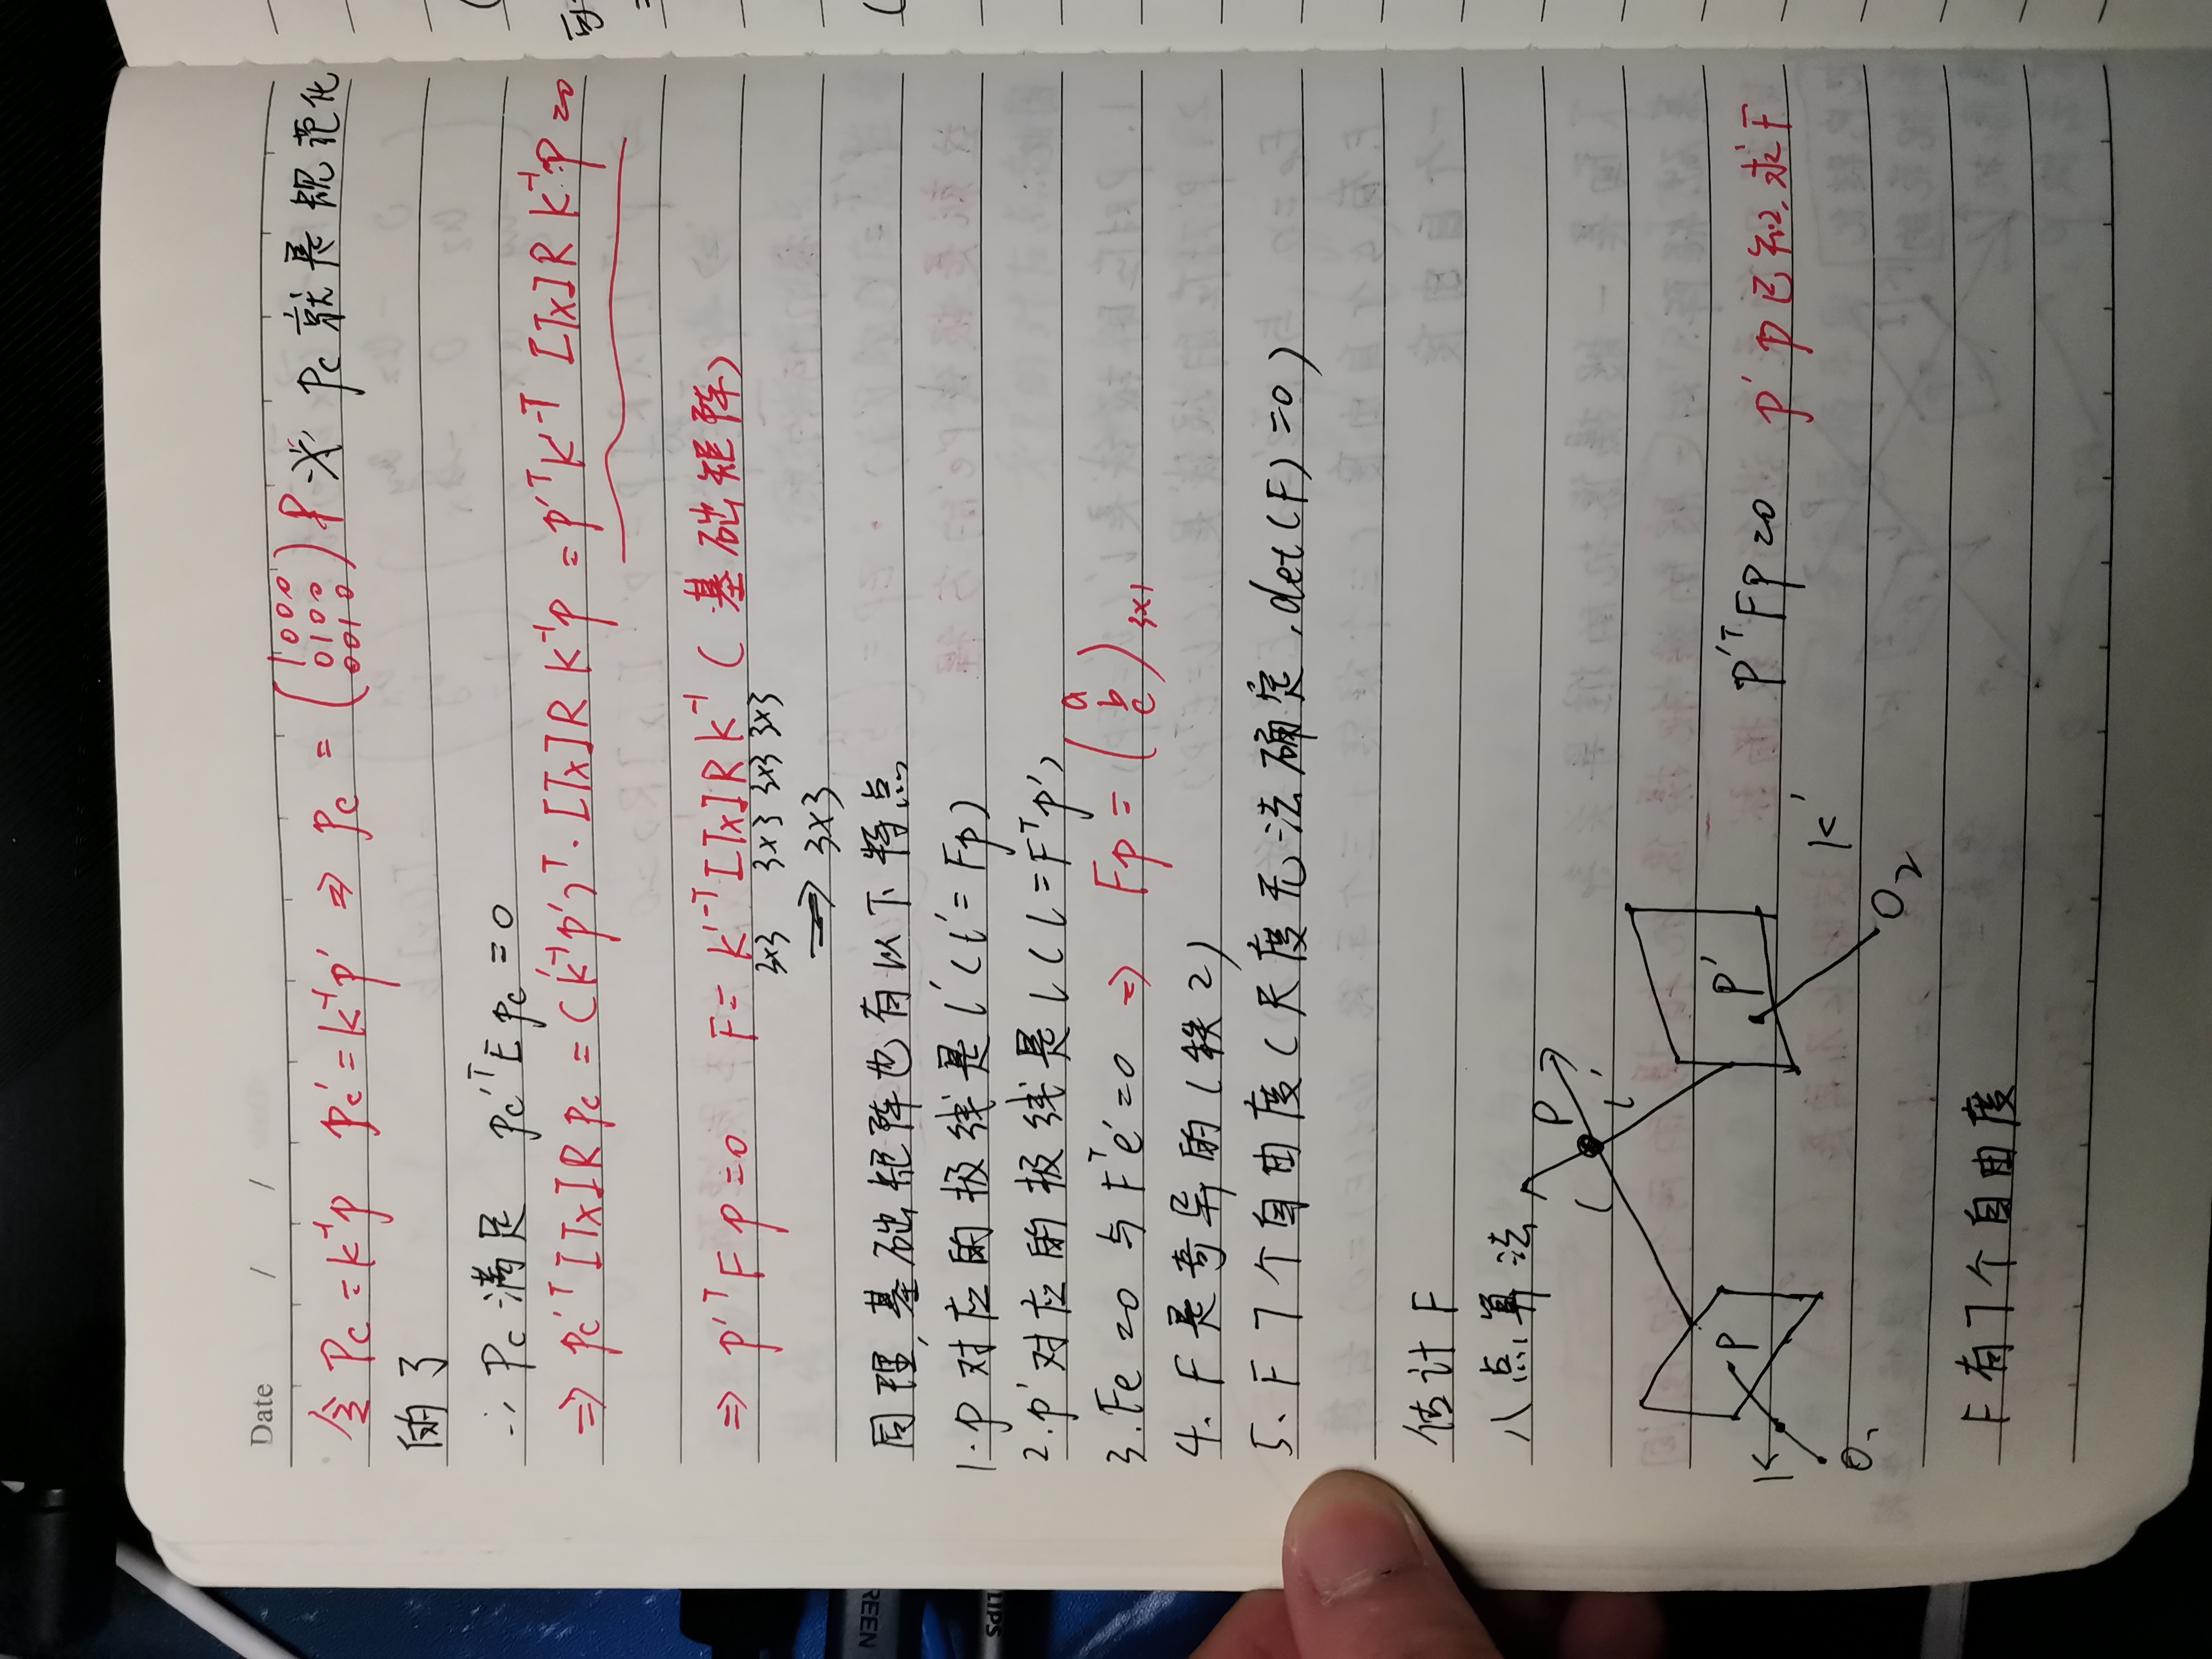 Date / /
令 Pc = k⁻¹p Pc' = k'⁻¹p' ⇒ Pc = (1000 0100 0010) P 必 Pc 就是规范化
的了
∵ Pc 满足 Pc'ᵀ E Pc = 0
⇒ Pc'ᵀ [Tx] R Pc = (k'⁻¹p')ᵀ · [Tx] R k⁻¹p = p'ᵀ k'⁻ᵀ [Tx] R k⁻¹p = 0
⇒ p'ᵀ F p = 0 F = k'⁻ᵀ [Tx] R k⁻¹ (基础矩阵)
3x3 3x3 3x3 3x3
⇒ 3x3
同理, 基础矩阵也有以下特点
1. p 对应的极线是 l' (l' = Fp)
2. p' 对应的极线是 l (l = Fᵀp')
3. Fe = 0 与 Fᵀe' = 0 ⇒ Fp = (a b c) 3x1
4. F 是奇异的 (秩 2)
5. F 7个自由度 (尺度无法确定, det(F) = 0)
估计 F
八点算法
P
l l'
P P' p'ᵀ F p = 0 p' p 已知, 求 F
K O₁ O₂ K'
F 有 7个自由度
REEN
LIPS